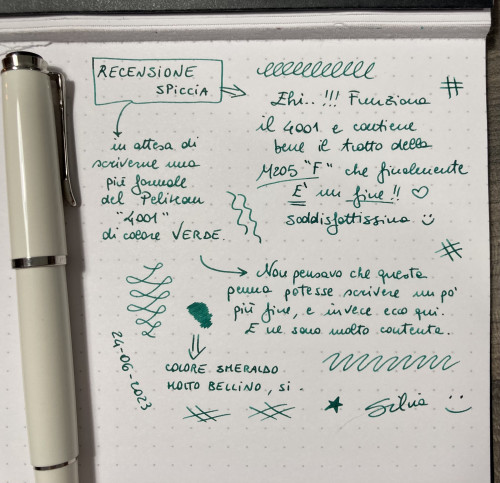 RECENSIONE
SPICCIA
in attesa di
scriverne una
più formale
del Pelikan
"4001"
di colore VERDE.
Ehi.. !!! Funziona
il 4001 e contiene
bene il tratto della
M205 "F" che finalmente
E' un fine!! ♡
soddisfattissima ☺
Non pensavo che questa
penna potesse scrivere un po'
più fine, e invece ecco qui.
E ne sono molto contenta.
COLORE SMERALDO
MOLTO BELLINO, SI.
24-06-2023
Silvia